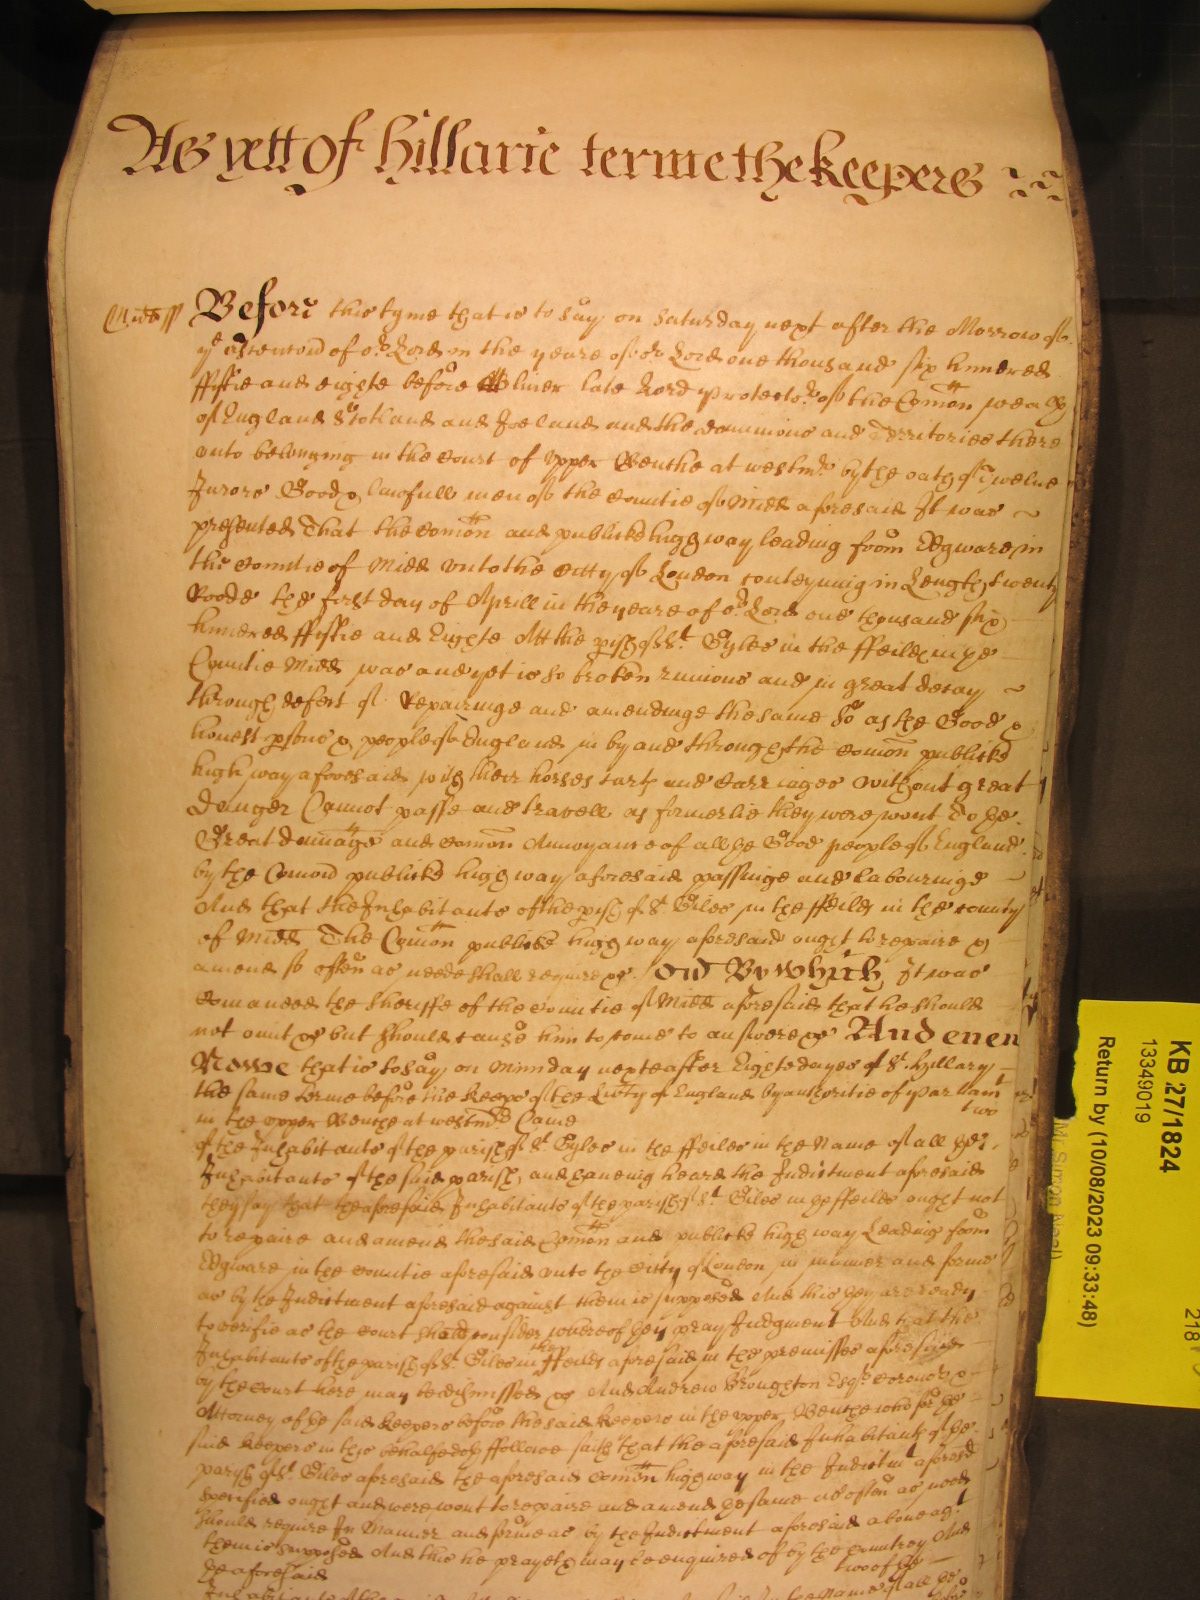 As yett of hillarie terme the keepers
Midd ss Before this tyme that is to say on Saturday next after the Morrow of
ye Ascencion of or Lord in the yeare of or Lord one thousand six hundred
ffiftie and eighte before Oliver late Lord Protector of the Comon wealth
of England Scotland and Ireland and the dominions and Territories there
unto belonging in the Court of Upper Benche at westmr by the oath of Twelve
Jurors Good & lawfull men of the Countie of Midd aforesaid It was
presented That the Comon and publicke high way leading from Edgware in
the Countie of Midd unto the Citty of London conteyning in Length twenty
Roods the first day of Aprill in the yeare of or Lord one thousand six
hundred ffiftie and Eighte Att the pish of St Gyles in the ffeilds in ye
Countie Midd was and yet is so broken ruinous and in great decay
through defect of Repairinge and amendinge the same So as the Good &
honest psons & people of England in by and through the comon publicke
high way aforesaid with their horses carts and Carriages without great
Daunger Cannot passe and travell as formerlie they were wont To the
Great damage and comon Annoyance of all the Good people of England
by the Comon publicke high way aforesaid passinge and labouringe
And that the Inhabitants of the pish of St Giles in the ffeilds in the County
of Midd The Comon publicke high way aforesaid ought to repaire &
amend so often as neede shall require &c. By which It was
comanded the Sheriffe of the Countie of Midd aforesaid that he should
not omitt &c but should cause him to come to answere &c And enen
Nowe that is to say on Munday next after Eight dayes of St hillary
the same terme before the keeps of the Libty of England by authoritie of Parliamt
in the upper Benche at westmr Came two
of the Inhabitants of the parish of St Gyles in the ffeilds in the Name of all the
Inhabitants of the said parish, and haveing heard the Indictment aforesaid
they say that the aforesaid Inhabitants of the parish of St Giles in the ffeilds ought not
to repaire and amend the said Comon and publicke high way Leading from
Edgware in the Countie aforesaid unto the Citty of London in manner and forme
as by the Indictment aforesaid against them is supposed And this they are ready
to verifie as the Court shall consider whereof they pray Judgment And that the
Inhabitants of the parish of St Giles in the ffeilds aforesaid in the premisses aforesaid
by the Court here may be dismissed &c And Andrew Broughton Esqr Coroner &
Attorney of the said keepers before the said keepers in the upper Benche who for the
said keepers in this behalfe doth ffollowe saith that the aforesaid Inhabitants of the
parish of St Giles aforesaid the aforesaid comon high way in the Indictmt aforesd
specified ought and were wont to repaire and amend the same as often as need
should require In Manner and forme as by the Indictment aforesaid above agt
them is supposed And this he prayeth may be enquired of by the Countrey And
the aforesaid two of the
Inhabitants in the Name of all the
KB 27/1824
13349019
Return by (10/08/2023 09:33:48)